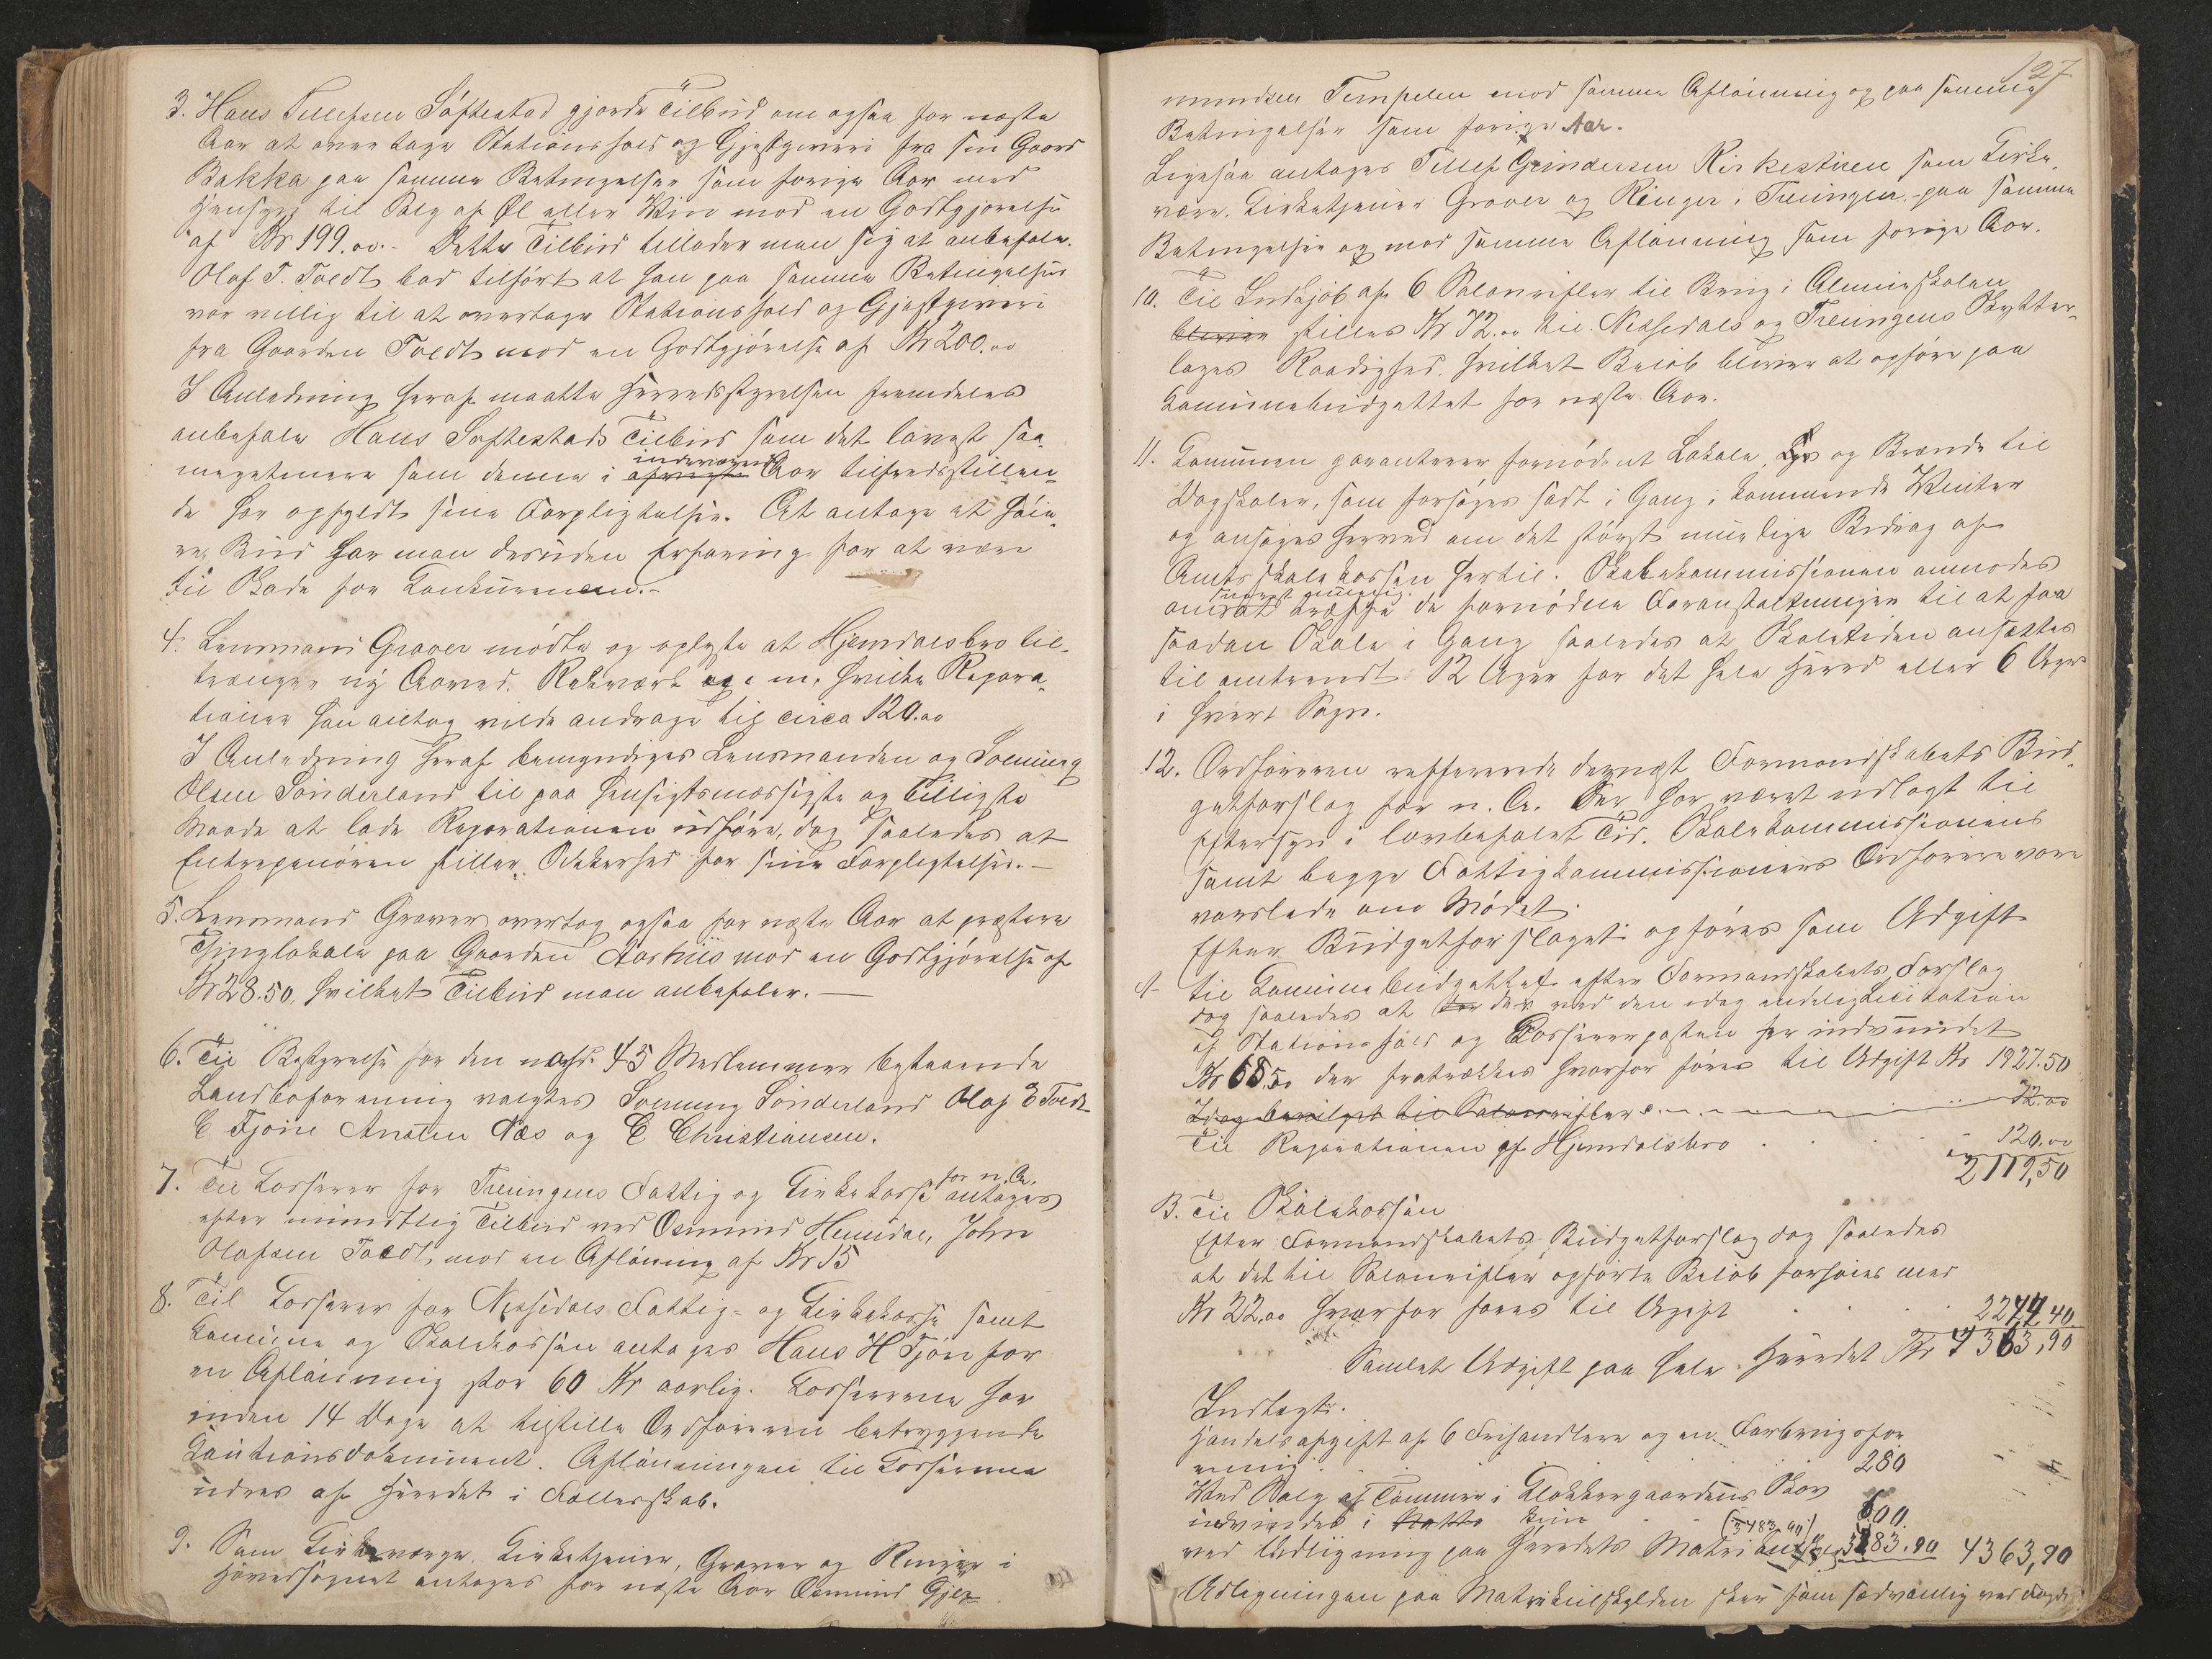 3. Hans Tellefsen Söftestad gjorde Tilbud om ogsaa for næste
Aar at overtage Stationshold og Gjestgiveri fra sin Gaard
Bakka paa samme Betingelser som forige Aar med
Hensyn til Salg af Øl eller Vin mod en Godtgjørelse
af Kr 199.00.- Dette Tilbud tillader man sig at anbefale.
Olaf T. Tvedt bad tilført at han paa samme Betingelser
var villig til at overtage Stationshold og Gjestgiveri
fra Gaarden Tvedt mod en Godtgjørelse af Kr 200.00
I Anledning heraf maatte Herredsstyrelsen fremdeles
anbefale Hans Søftestads Tilbud som det lavest saa
megetmere som denne i afvigte indeværende Aar tilfredsstillen-
de har opfyldt sine Forpligtelser. At antage et høie-
re Bud har man desuden Erfaring for at være
til Skade for Konkurrencen.-
4. Lensmand Graver mødte og oplyste at Hjemdalsbro til-
trænger ny Aaved, Rekværk m. m. hvilke Repara-
tioner han antog vilde andrage til circa 120.00
I Anledning heraf bemyndiges Lensmanden og Solming
Olsen Sönderland til paa hensigtsmæssigste og billigste
Maade at lade Reparationen udføre, dog saaledes at
Entreprenøren stiller Sikkerhed for sine Forpligtelser.-
5. Lensmand Graver overtog ogsaa for næste Aar at præstere
Thinglokale paa Gaarden Aashus mod en Godtgjørelse af
Kr 28.50, hvilket Tilbud man anbefaler.-
6. Til Bestyrelse for den af 45 Medlemmer bestaaende
Landboforening valgtes Solming Sönderland Olaf T Tvedt
E Fjone Anslen Næs og E Christiansen.
7. Til Kasserer for Treungens Fattig og Kirkekasse for n. A. antages
efter mundtlig Tilbud ved Osmund Hemdal, John
Olafsen Tvedt, mod en Aflønning af Kr 15
8. Til Kasserer for Nissedals Fattig- og Kirkekasse samt
Komune og Skolekassen antages Hans H Tjön for
en Aflønning stor 60 Kr aarlig. Kassererne har
inden 14 Dage at tilstille Ordføreren betryggende
Kautionsdokument. Aflønningen til Kassererne
udres af Herredet i Fællesskab.
9. Som Kirkeværge, Kirketjener, Graver og Ringer i
Hovedsognet antages for næste Aar Osmund Gjer-
127
mundsen Tempelen mod samme Aflønning og paa samme
Betingelser som forige Aar.
Ligesaa antages Tellef Gundersen Kirkestuen som Kirke-
værge, Kirketjener Graver og Ringer i Treungen, paa samme
Betingelser og mod samme Aflønning som forige Aar.
10. Til Indkjøb af 6 Salonrifler til Brug i Almueskolen
bliver stilles Kr 72.00 til Nissedals og Treungens Skytter-
lags Raadighed, hvilket Beløb bliver at opføre paa
Komunebudgettet for næste Aar.
11. Komunen garanterer fornødent Lokale, Lys og Brænde til
Dagskoler, som forsøges sadt i Gang i kommende Vinter
og ansøges herved om det størst mulige Bidrag af
Amtsskolekassen hertil. Skolekommissionen anmodes
om at snarest muligt træffe de fornødne Foranstaltninger til at faa
saadan Skole i Gang saaledes at Skoletiden ansættes
til omtrendt 12 Uger for det hele Hered eller 6 Uger
i hvert Sogn.
12. Ordføreren refererede dernæst Formandskabets Bud-
getforslag for n. A. Der har været udlagt til
Eftersyn i lovbefalet Tid. Skolekommissionens
samt begge Fattigkommissioners Ordførere vare
varslede om Mødet.
Efter Budgetforslaget opføres som Udgift
A. til Komunebudgettet efter Formandskabets Forslag
dog saaledes at der ved den idag endelig Licitation
af Stationshold og Kassererposten har indvundet
Kr 68.50 der fratrækkes hvorfor føres til Udgift Kr 1927.50
Idag bevilget til Salonrifler . . . 72.00
Til Reparationen af Hjemdalsbro . . . 120.00
2119,50
B. Til Skolekassen
Efter Formandskabets Budgetforslag dog saaledes
at det til Salonrifler opførte Beløb forhøies med
Kr 22.00 hvorfor føres til Udgift . . . 2244,40
Samlet Udgift paa hele Heredet Kr 4363,90
Indtægt.
Handelsafgift af 6 Frihandlere og en Forbrugsfor-
ening . . . 280
Ved Salg af Tømmer i Klokkergaardens Skov
indvindes . . . 600.
(3483,90)
ved Udligning paa Heredets Matrikul 3483.90 4363,90
Udligningen paa Matrikulskylden sker som sædvanlig ved Foged